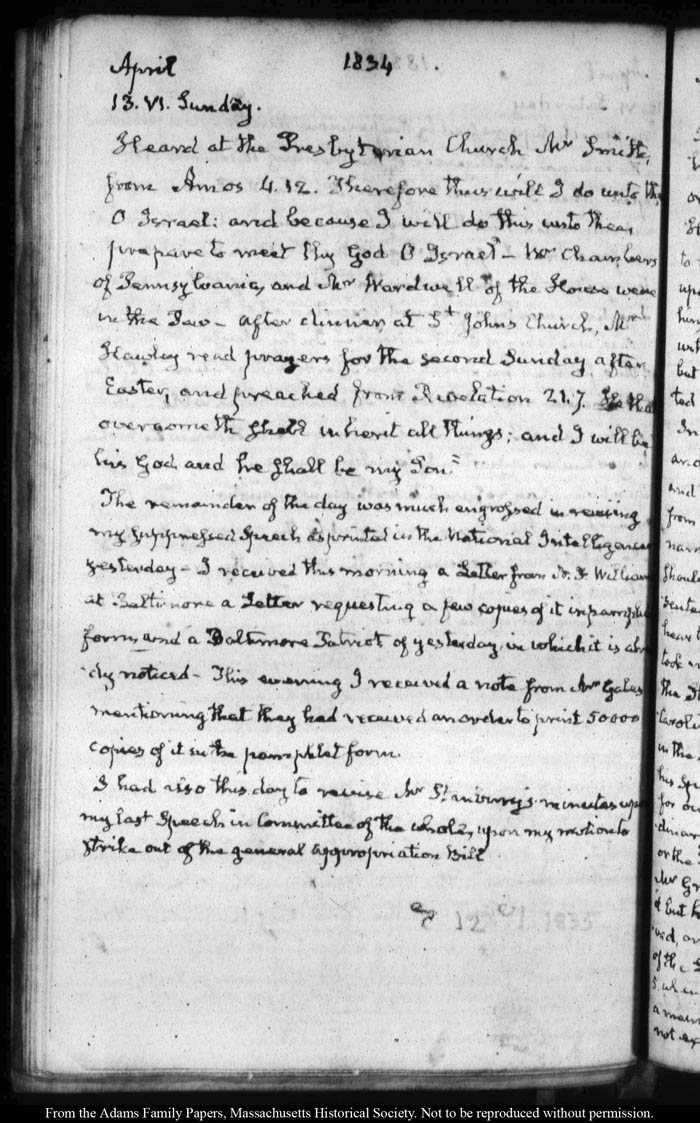 April 1834.
13. VI. Sunday.
Heard at the Presbyterian Church Mr Smith,
from Amos 4.12. Therefore thus will I do unto thee
O Israel: and because I will do this unto thee,
prepare to meet thy God O Israel – Mr Chambers
of Pennsylvania, and Mr Wardwell of the House were
in the Pew – after dinner, at St Johns Church, Mr
Hawley read prayers for the second Sunday after
Easter, and preached from Revelation 21.7. He that
overcometh shall inherit all things; and I will be
his God, and he shall be my Son."
The remainder of the day was much engrossed in revising
my suppressed Speech as printed in the National Intelligencer
yesterday – I received this morning a Letter from William
at Baltimore a Letter requesting a few copies of it in pamphlet
form, and a Baltimore Patriot of yesterday in which it is alrea
dy noticed – This evening I received a note from Mr Gales
mentioning that they had received an order to print 50000
copies of it in the pamphlet form.
I had also this day to revise Mr Stansbury's minutes upon
my last Speech in Committee of the whole, upon my motion to
strike out of the general appropriation Bill
12 1835
From the Adams Family Papers, Massachusetts Historical Society. Not to be reproduced without permission.